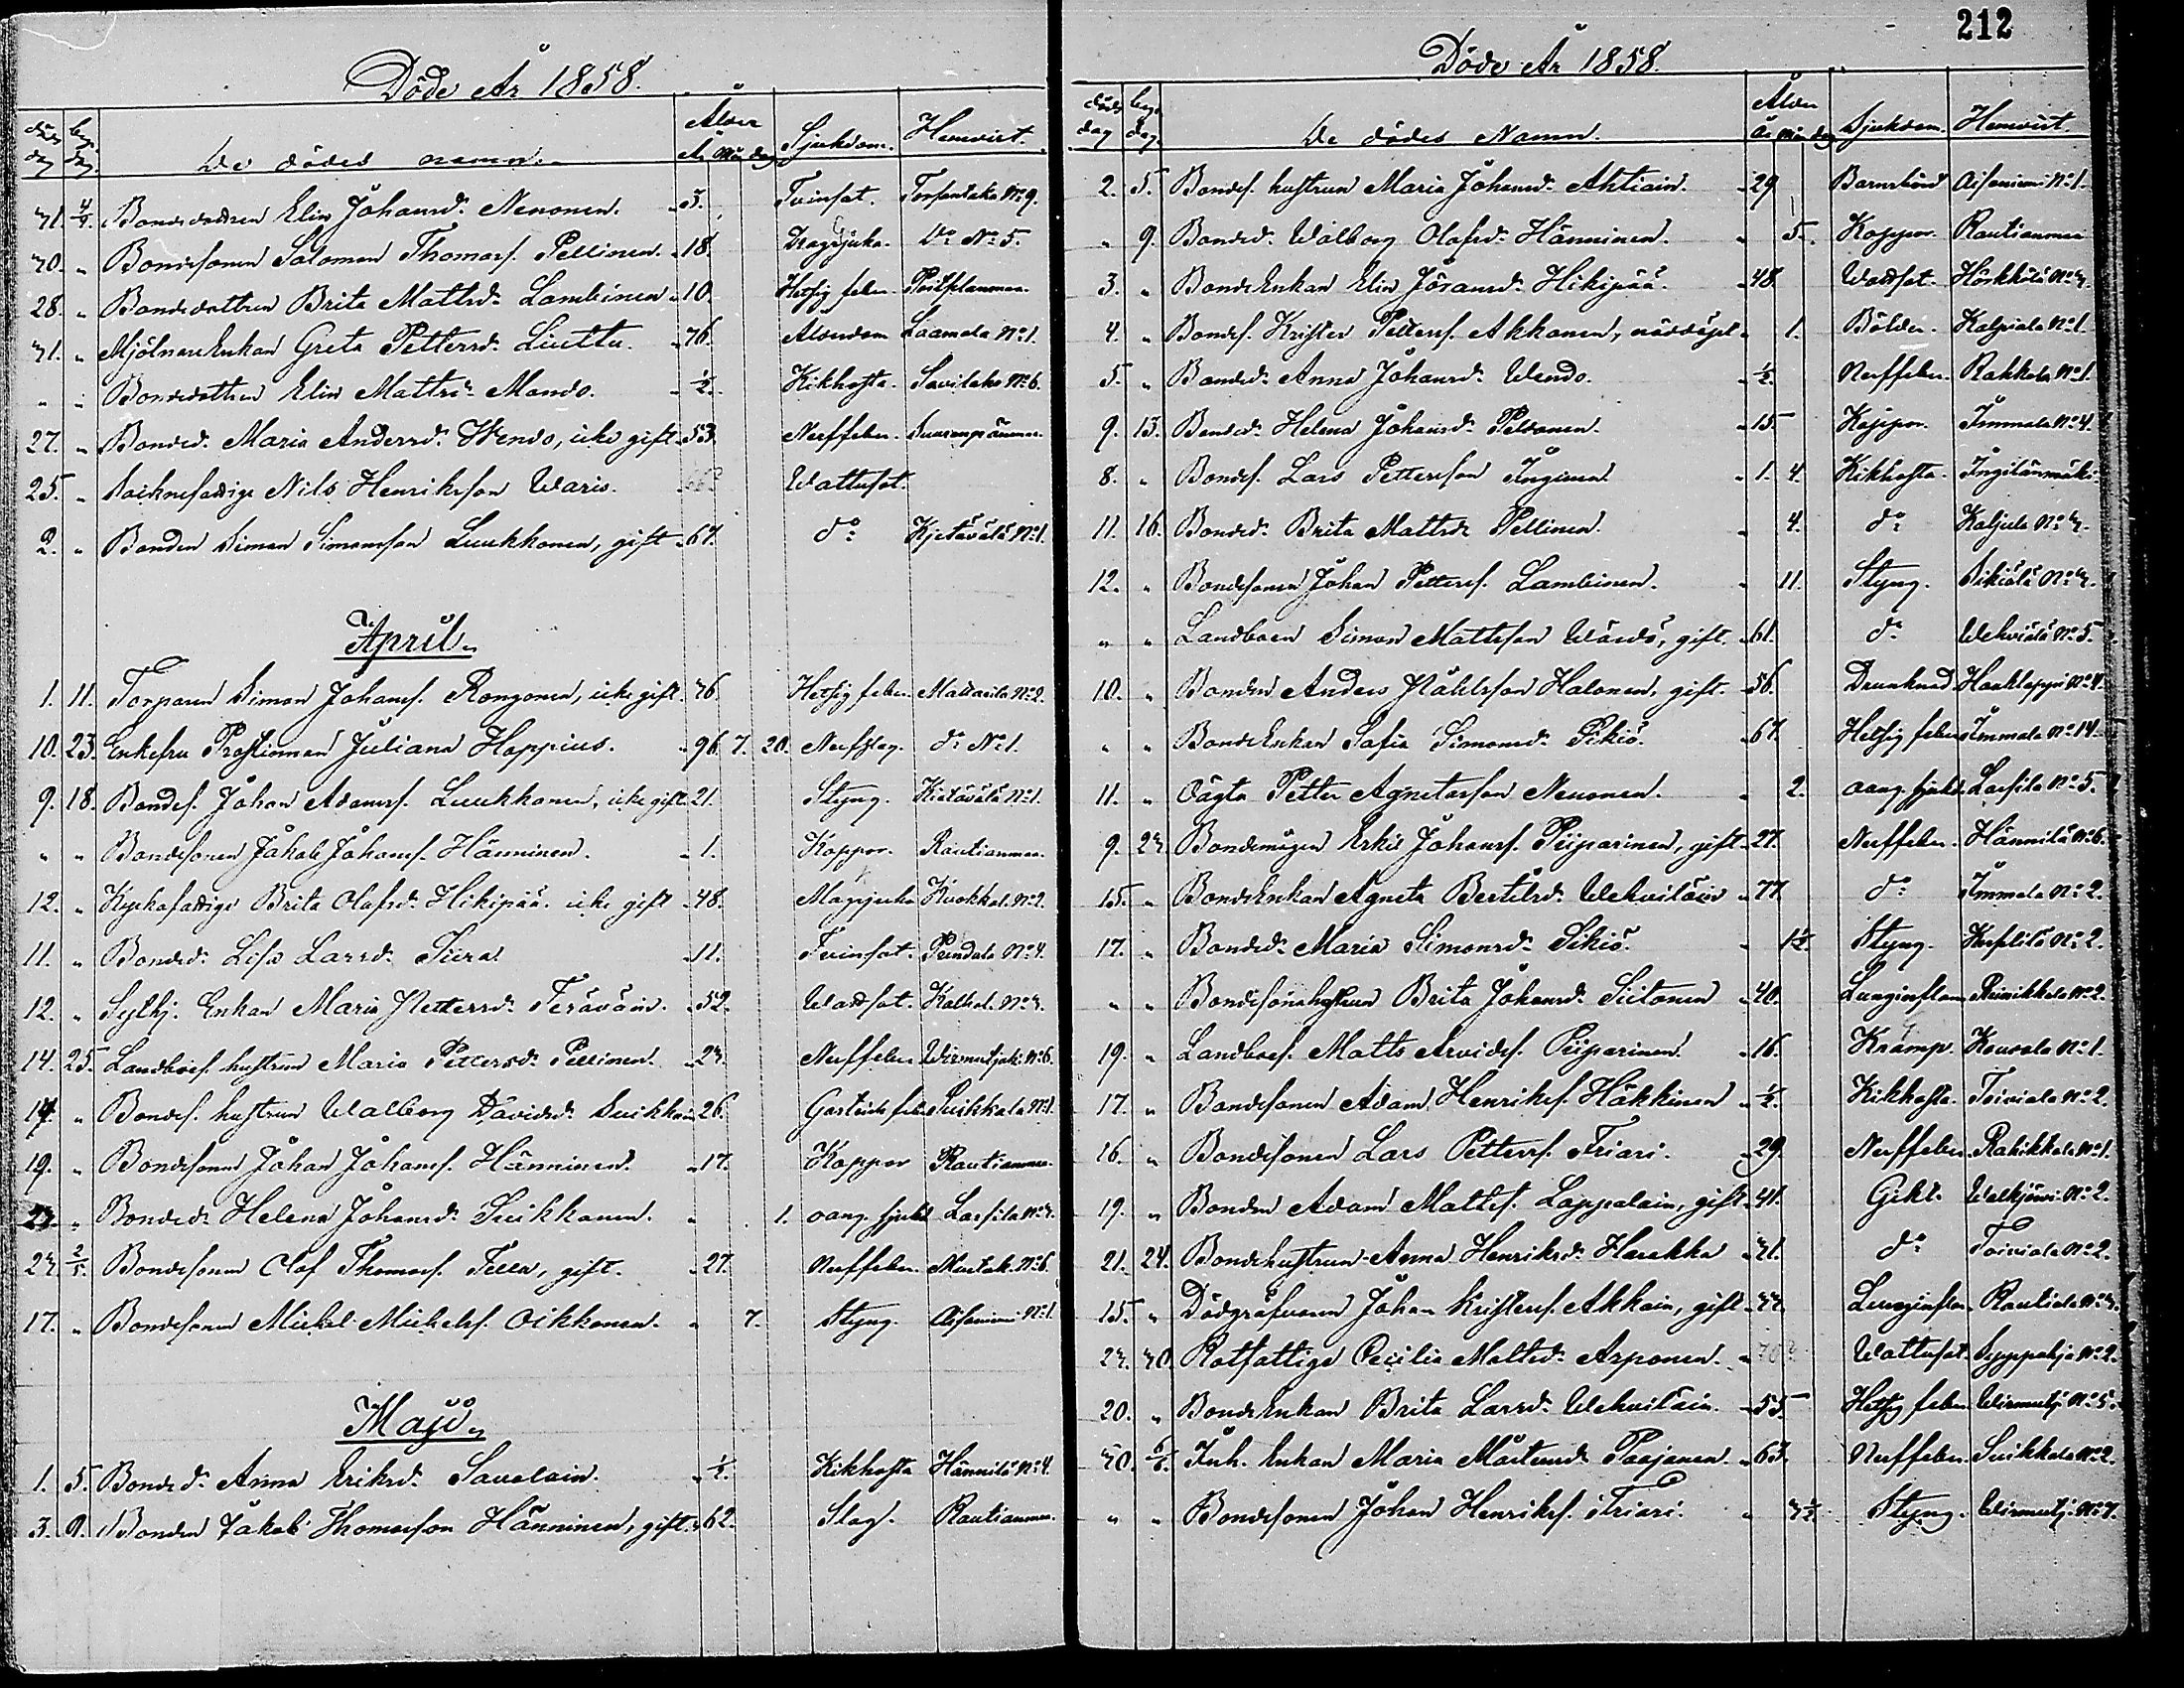 Döde År 1858.
döds dag begr. dag De dödes namn. Ålder År Mån dag Sjukdom. Hemvist.
31. 4/4. Bondedottren Elin Johansd:r Nenonen. 3. Tvinsot. Torsantaka N:o 9.
30. " Bondesonen Salomon Thomasf. Pellinen. 18. Dragsjuka. D:o N:o 5.
28. " Bondedottren Brita Mattsd:r Lambinen 10. Hetsig feber.
31. " Mjölnare Enkan Greta Pettersd:r Liuttu. 76. Ålderdom Laamala N:o 1.
" " Bondedottren Elin Mattsd:r Mando. 1/2. Kikhosta. Savilaks N:o 6.
27. " Bonded:r Maria Andersd:r Wendo, icke gift. 53. Nerffeber.
25. " Socknefattige Nils Henriksson Waris. 66? Wattusot.
2. " Bonden Simon Simonsson Luukkonen, gift. 67. d:o Kjetävälä N:o 1.
April.
1. 11. Torparen Simon Johansf. Rongonen, icke gift. 76. Hetsig feber. Mattasila N:o 2.
10. 23. Enkefru Prostinnan Juliana Hoppius. 96. 7. 20. Nerfslag. d:o N:o 1.
9. 18. Bondes. Johan Adamsf. Luukkonen, icke gift. 21. Styng. Kietävälä N:o 1.
" " Bondesonen Jakob Johansf. Hänninen. 1. Koppor. Rautianmaa.
12. " Kyrkofattige Brita Olofsd:r Hikipää. icke gift 48. Magsjuka Kuokkal. N:o 2.
11. " Bonded:r Lisa Larsd:r Siira 11. Tvinsot. Pundala N:o 4.
12. " Sythj. Enkan Maria Pettersd:r Teräväin. 52. Wattsot. Kalkal. N:o 3.
14. 25. Landboes. hustrun Maria Pettersd:r Pellinen. 23. Nerffeber Wirmutjoki N:o 6.
14. " Bondes. hustrun Walborg Davidsd:r Suikkain 26. Gastrisk feb. Suikkala N:o 1.
19. " Bondesonen Johan Johansf. Hänninen. 17. Koppor Rautianmaa.
23. " Bonded:r Helena Johansd:r Suikkanen. 1. oang. sjukd. Lassila N:o 3.
23. 2/5. Bondesonen Olof Thomasf. Tella, gift. 27. Nerffeber. Mertak. N:o 6.
17. " Bondesonen Mickel Mickelsf. Oikkonen. 7. Styng. Äisäniemi N:o 1.
Maji.
1. 5. Bonded:r Anna Eriksd:r Savolain. 1/2. Kikhosta Hännilä N:o 4.
3. 9. Bonden Jakob Thomasson Hänninen, gift. 62. Slag. Rautianmaa.
212
Döde År 1858.
döds dag begr. dag. De dödes Namn. Ålder År Mån dag Sjukdom. Hemvist.
2. 5. Bondes. hustrun Maria Johansd:r Ahtiain. 29 Barnsbörd Äisäniemi N:o 1.
" 9. Bonded:r Walborg Olofsd:r Hänninen. 5. Koppor. Rautianmaa
3. " Bonde Enkan Elin Jöransd:r Hikipää. 48 Wattsot. Hörkkölä N:o 3.
4. " Bondes. Krister Pettersf. Akkanen, nöddöpt 1. Bölder. Kalpiala N:o 1.
5. " Bonded:r Anna Johansd:r Wendo. 1/2. Nerffeber. Rakkola N:o 1.
9. 13. Bonded:r Helena Johansd:r Peltonen. 15 Koppor. Immala N:o 4.
8. " Bondes. Lars Pettersson Inginen 1. 4. Kikhosta. Ingilänmäki.
11. 16. Bonded:r Brita Mattsd:r Pellinen. 4. d:o Kaljula N:o 3.
12. " Bondesonen Johan Pettersf. Lambinen. 11. Styng. Sikiälä N:o 3.
" " Landboen Simon Mattsson Wäiväs, gift. 61. d:o Wehviälä N:o 5.
10. " Bonden Anders Påhlsson Halonen, gift. 56. Drunknad Hanklappi N:o 4.
" " Bonde Enkan Sofia Simonsd:r Sikiö. 67. Hetsig feber Immala N:o 14.
11. " Oägta Petter Agnetasson Nenonen. 2. oang. sjukd. Lassila N:o 5.
9. 23. Bondemågen Erkis Johansf. Piiparinen, gift 27. Nerffeber. Hännilä N:o 6.
15. " Bonde Enkan Agneta Bertilsd:r Wehviläin 77. d:o Immala N:o 2.
17. " Bonded:r Maria Simonsd:r Sikiö. 1 1/2 Styng. N:o 2.
" " Bondesonahustrun Brita Johansd:r Siitonen 40. Lunginflam. Räinikkala N:o 2.
19. " Landboes. Matts Arvidsf. Piiparinen. 16. Kramp. Kouvola N:o 1.
17. " Bondesonen Adam Henriksf. Häkkinen 1/2. Kikhosta. Toiviala N:o 2.
16. " Bondesonen Lars Pettersf. Friari. 29. Nerffeber. Rahikkala N:o 1.
19. " Bonden Adam Mattsf. Lappalain, gift. 41. Gikt. Walkjärvi N:o 2.
21. 24. Bondehustrun Anna Henriksd:r Harakka 31. d:o Toiviala N:o 2.
15. " Dödgräfvaren Johan Kristersf. Akkain, gift 33. Lunginflam. Rautiala N:o 3.
23. 30. Rotfattige Cecilia Mattsd:r Asponen. 70? Wattusot. Seppohja N:o 2.
20. " Bonde Enkan Brita Larsd:r Wehviläin. 55. Hetsig feber. Wirmutj. N:o 5.
30. 6/6. Inh. Enkan Maria Mårtensd:r Paajanen. 63. Nerffeber. Suikkala N:o 2.
" " Bondesonen Johan Henriksf. Friari. 3 1/2 Styng. Wirmutj. N:o 7.